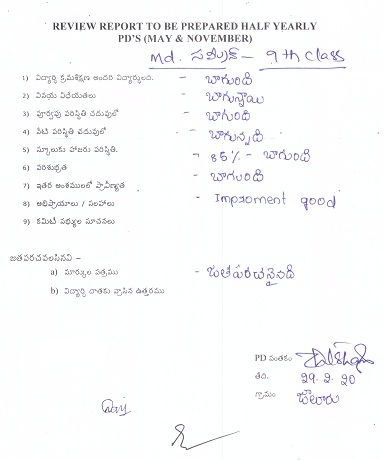 REVIEW REPORT TO BE PREPARED HALF YEARLY
PD'S (MAY & NOVEMBER)
Md. - 9th Class
1) విద్యార్థి క్రమశిక్షణ అందరి విద్యార్థులది. - బాగుంది
2) వినయ విధేయతలు - బాగున్నాయి
3) పూర్వపు పరిస్థితి చదువులో - బాగుంది
4) నేటి పరిస్థితి చదువులో - బాగున్నది
5) స్కూలుకు హాజరు పరిస్థితి. - 85% - బాగుంది
6) పరిశుభ్రత - బాగుంది
7) ఇతర అంశములలో ప్రావీణ్యత - బాగుంది
8) అభిప్రాయాలు / సలహాలు - Improment good
9) కమిటీ సభ్యుల సూచనలు
జతపరచవలసినవి –
a) మార్కుల పత్రము - జతపరచనైనది
b) విద్యార్థి దాతకు వ్రాసిన ఉత్తరము
PD సంతకం
తేది. 29.2.20
గ్రామం